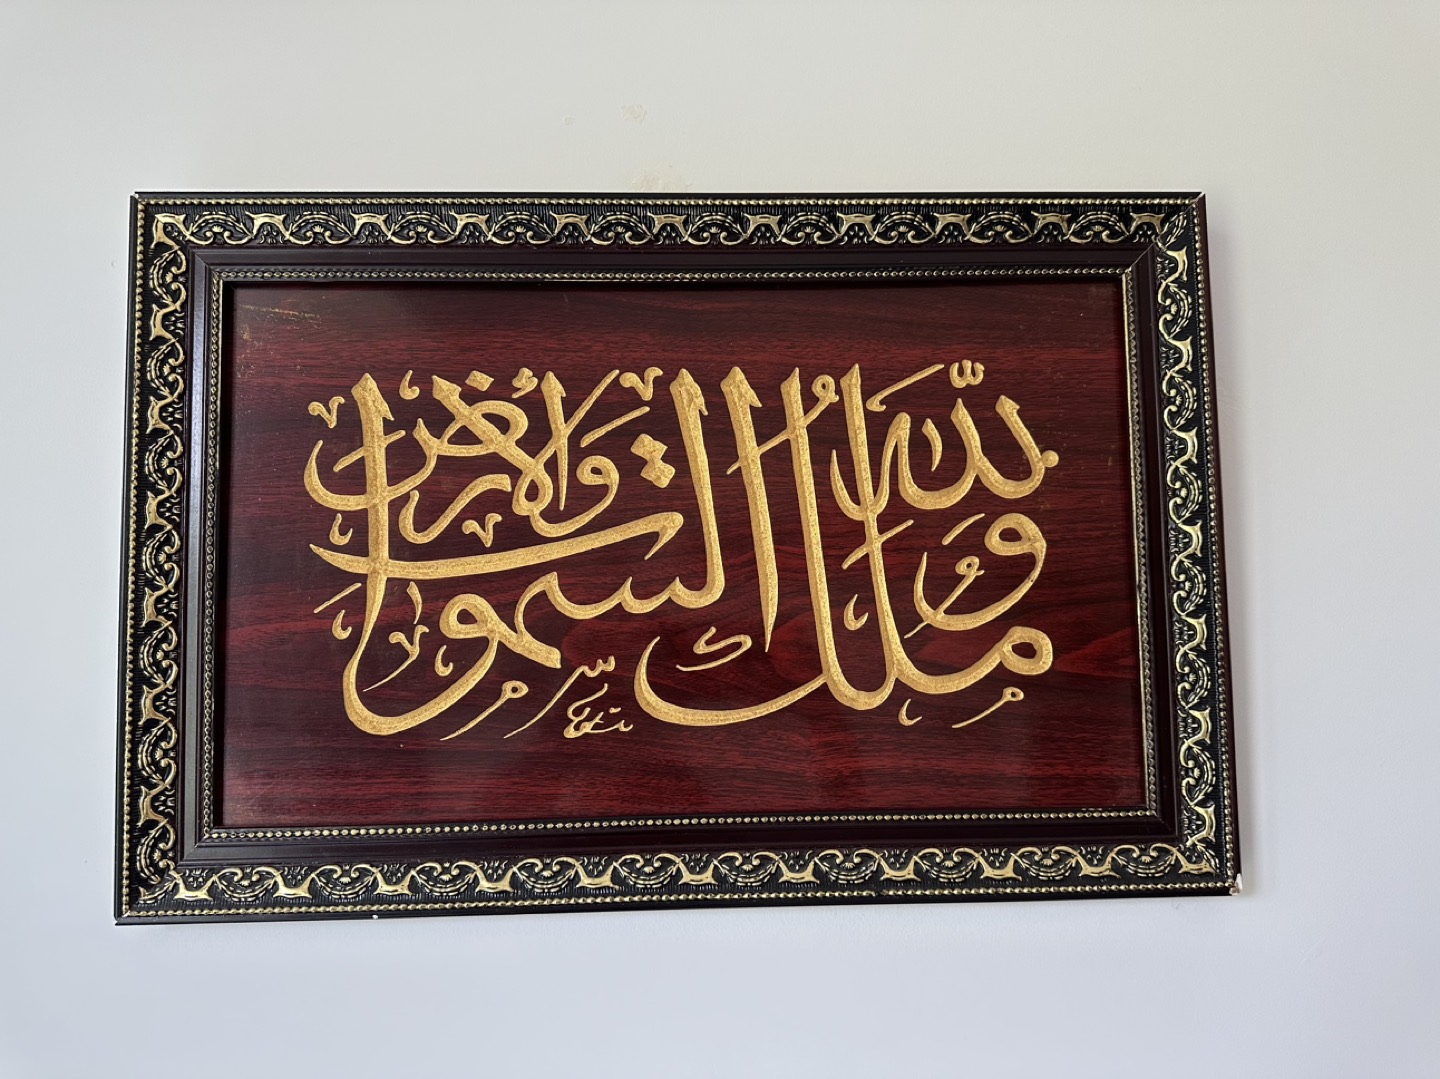 ولله ملك السموات والأرض